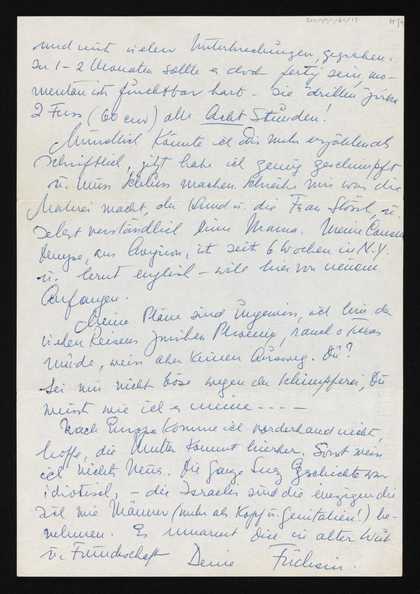 und mit vielen Unterbrechungen gegraben.
In 1-2 Monaten sollte er doch fertig sein, mo-
mentan ists furchtbar hart - Sie "drillen" zirka
2 Fuss (60 cm) alle Acht Stunden!
Mündlich könnte ich Dir mehr erzählen als
schriftlich, jetzt habe ich genug geschimpft
u. muss Schluss machen. Schreibe mir was die
Malerei macht, der Hund u. die Frau Stössl, u.
selbstverständlich Deine Mama. Meine Cousine
Denyse, aus Avignon, ist seit 6 Wochen in N.Y.
u. lernt englisch - will hier von neuem
Anfangen.
Meine Pläne sind Ungewiss, ich bin der
vielen Reisens zwischen Phoenix, ranch & Texas
müde, weiss aber keinen Ausweg. Du?
Sei mir nicht böse wegen der Schimpferei, Du
weisst wie ich es meine - - - -
Nach Europa komme ich vorderhand nicht,
hoffe, die Mutter kommt hierher. Sonst weiss
ich nichts Neues. Die ganze Suez Geschichte war
idiotisch, - die Israelis sind die einzigen die
sich wie Männer (mehr als Kopf u. Genitalien!) be-
nehmen. Es umarmt Dich in alter Lieb
u. Freundschaft Deine Füchsin.